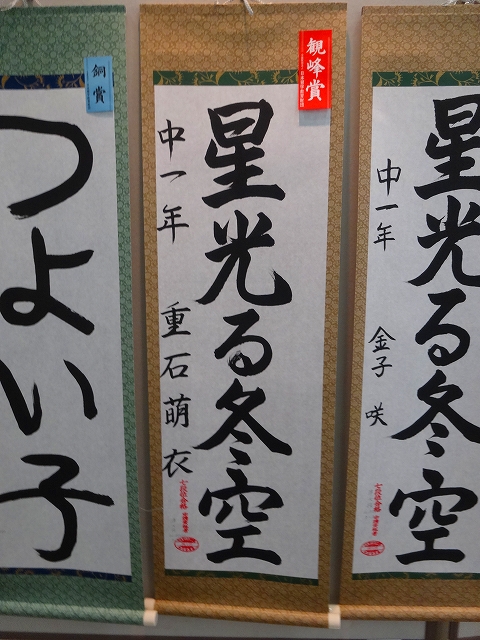 星光る冬空
中一年 金子 咲
観峰賞
星光る冬空
中一年 重石萌衣
銅賞
つよい子